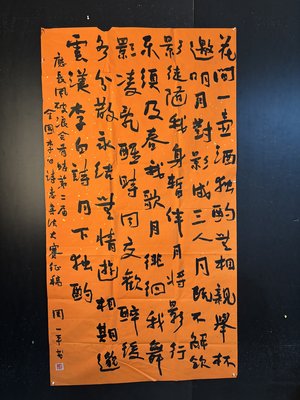 花间一壶酒独酌无相亲举杯
邀明月对影成三人月既不解饮
影徒随我身暂伴月将影行
乐须及春我歌月徘徊我舞
影凌乱醒时同交欢醉后
各分散永结无情游相期邈
云汉李白诗月下独酌
应长风破浪会有时第二届
全国李白诗意书法大赛征稿 周一平书